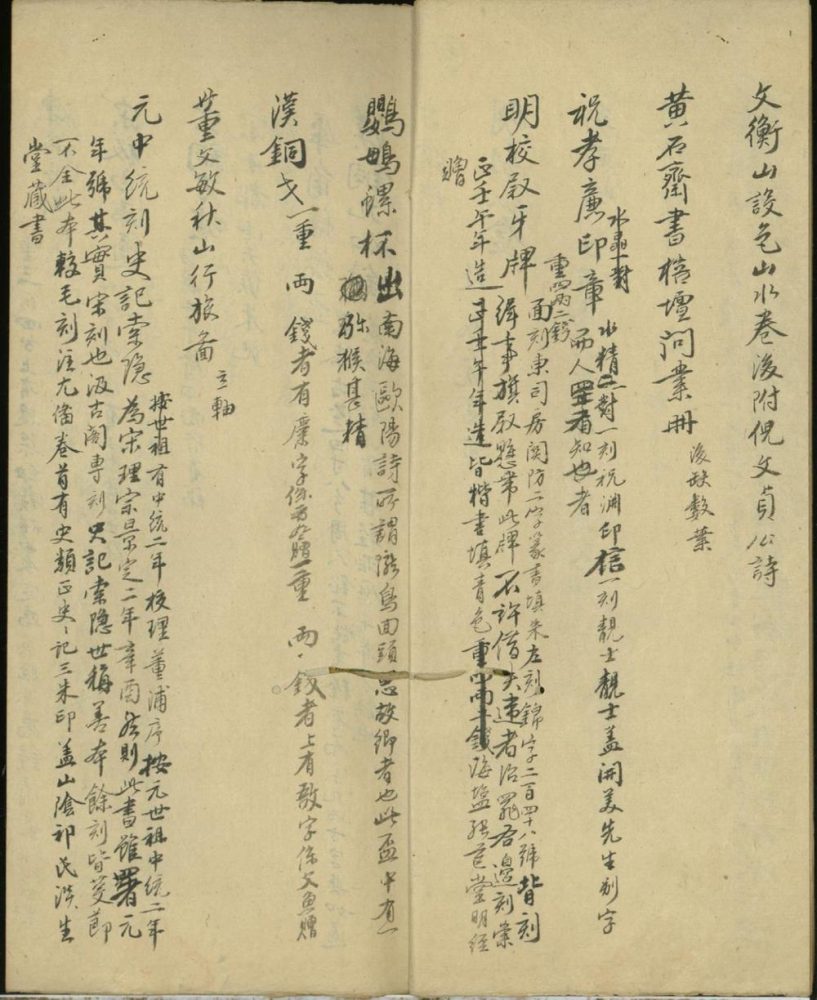 文衡山設色山水卷後附倪文貞公詩
黃石齋書榕壇問業冊 後缺數葉
祝孝廉印章 水晶對 水精二對一刻祝淵印信一刻靚士靚士蓋開美先生別字
而人罕有知也者
重四兩二錢
明校尉牙牌 面刻東司房關防二字篆書填朱左刻錦字二百四十八號背刻
緝事旗尉懸帶此牌不許借失違者治罪右邊刻崇
正壬午年造 正壬午年造皆楷書填青色重四兩二錢海鹽張芑堂明經
贈
鸚鵡螺杯 出南海歐陽詩所謂隴鳥回頭思故鄉者也此盃中有一
獼猴甚精
漢銅戈 一重 兩 錢者有廩字係 贈一重 兩 錢者上有敬字係文魚贈
董文敏秋山行旅圖 立軸
元中統刻史記索隱 按世祖有中統二年校理董浦序按元世祖中統二年
為宋理宗景定二年辛酉然則此書雖署元
年號其實宋刻也汲古閣專刻史記索隱世稱善本餘刻皆芟節
不全此本較毛刻注尤備卷首有史類正史史記三朱印蓋山陰祁氏淡生
堂藏書